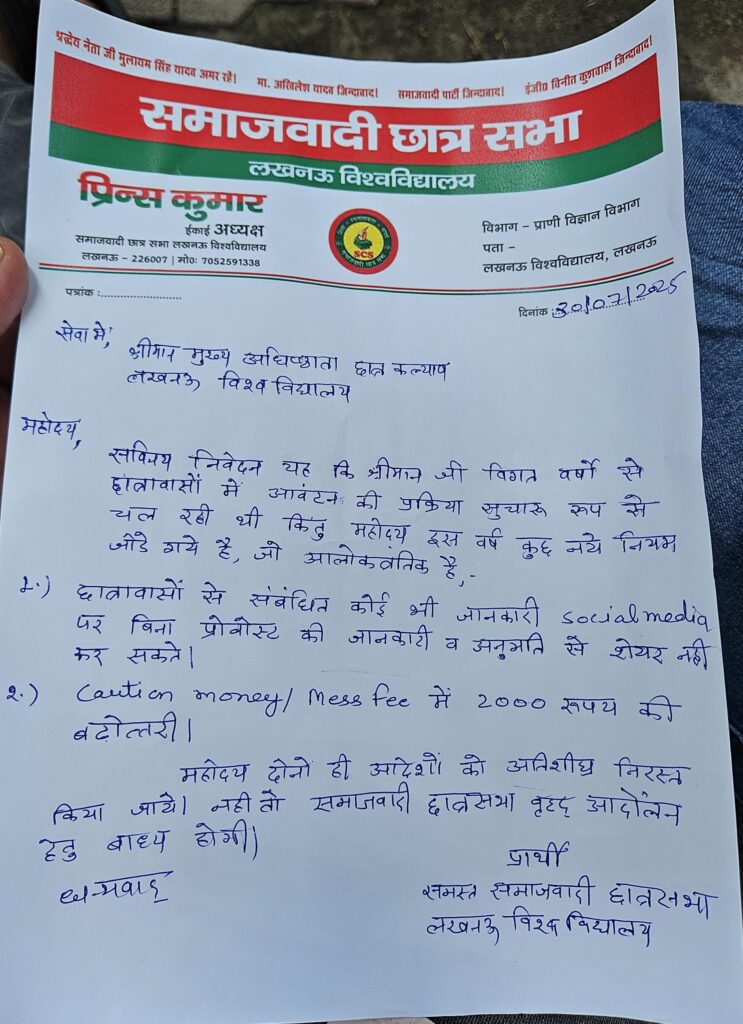 श्रद्धेय नेता जी मुलायम सिंह यादव अमर रहें! मा. अखिलेश यादव जिन्दाबाद! समाजवादी पार्टी जिन्दाबाद! इंजी0 विनीत कुशवाहा जिन्दाबाद!
समाजवादी छात्र सभा
लखनऊ विश्वविद्यालय
प्रिन्स कुमार
ईकाई अध्यक्ष
समाजवादी छात्र सभा लखनऊ विश्वविद्यालय
लखनऊ – 226007 | मो0: 7052591338
SCS
विभाग - प्राणी विज्ञान विभाग
पता -
लखनऊ विश्वविद्यालय, लखनऊ
पत्रांक :........................
दिनांक : 30/07/2025
सेवा में,
श्रीमान मुख्य अधिष्ठाता छात्र कल्याण
लखनऊ विश्व विद्यालय
महोदय,
सविनय निवेदन यह कि श्रीमान जी विगत वर्षो से
छात्रावासों में आवंटन की प्रक्रिया सुचारू रूप से
चल रही थी किंतु महोदय इस वर्ष कुछ नये नियम
जोडे गये है, जो आलोकतंतिक है,-
1.) छात्रावासों से संबंधित कोई भी जानकारी social media
पर बिना प्रोवोस्ट की जानकारी व अनुमति से शेयर नही
कर सकते।
2.) Caution money/ Mess fee में 2000 रूपय की
बढ़ोत्तरी।
महोदय दोनों ही आदेशों को अतिशीघ्र निरस्त
किया जाये। नही तो समाजवादी छात्रसभा वृहद् आदोंलन
हेतु बाध्य होगी।
धन्यवाद्
प्रार्थी
समस्त समाजवादी छात्रसभा
लखनऊ विश्व विद्यालय